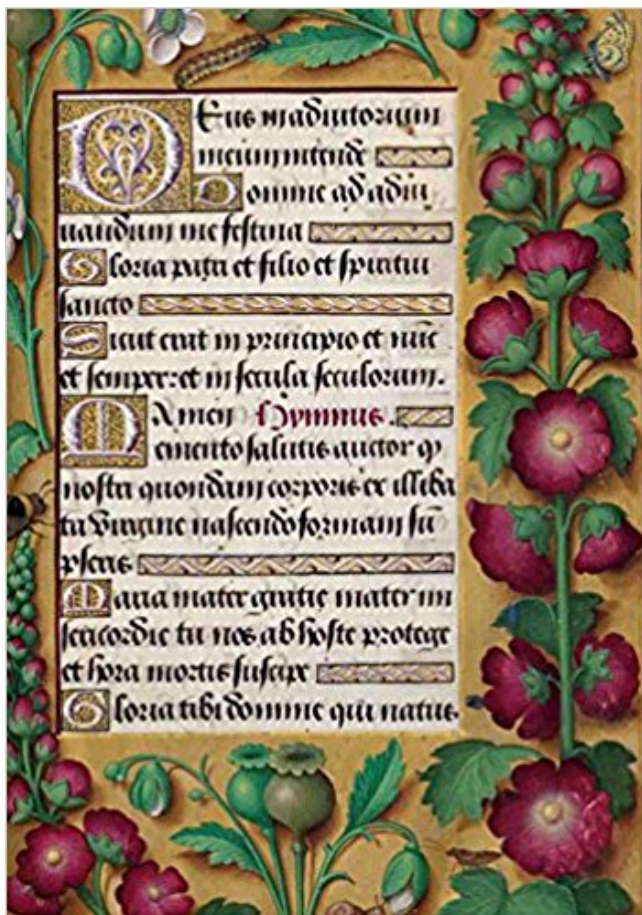 Deus in adiutorium
meum intende
Domine ad adiu
uandum me festina
Gloria patri et filio et spiritui
sancto
Sicut erat in principio et nūc
et semper: et in secula seculorum.
Amen Hymnus.
Memento salutis auctor ꝙ
nostri quondam corporis ex illiba
ta virgine nascendo formam sū
pseris
Maria mater gratie mater mi
sericordie tu nos ab hoste protege
et hora mortis suscipe
Gloria tibi domine qui natus